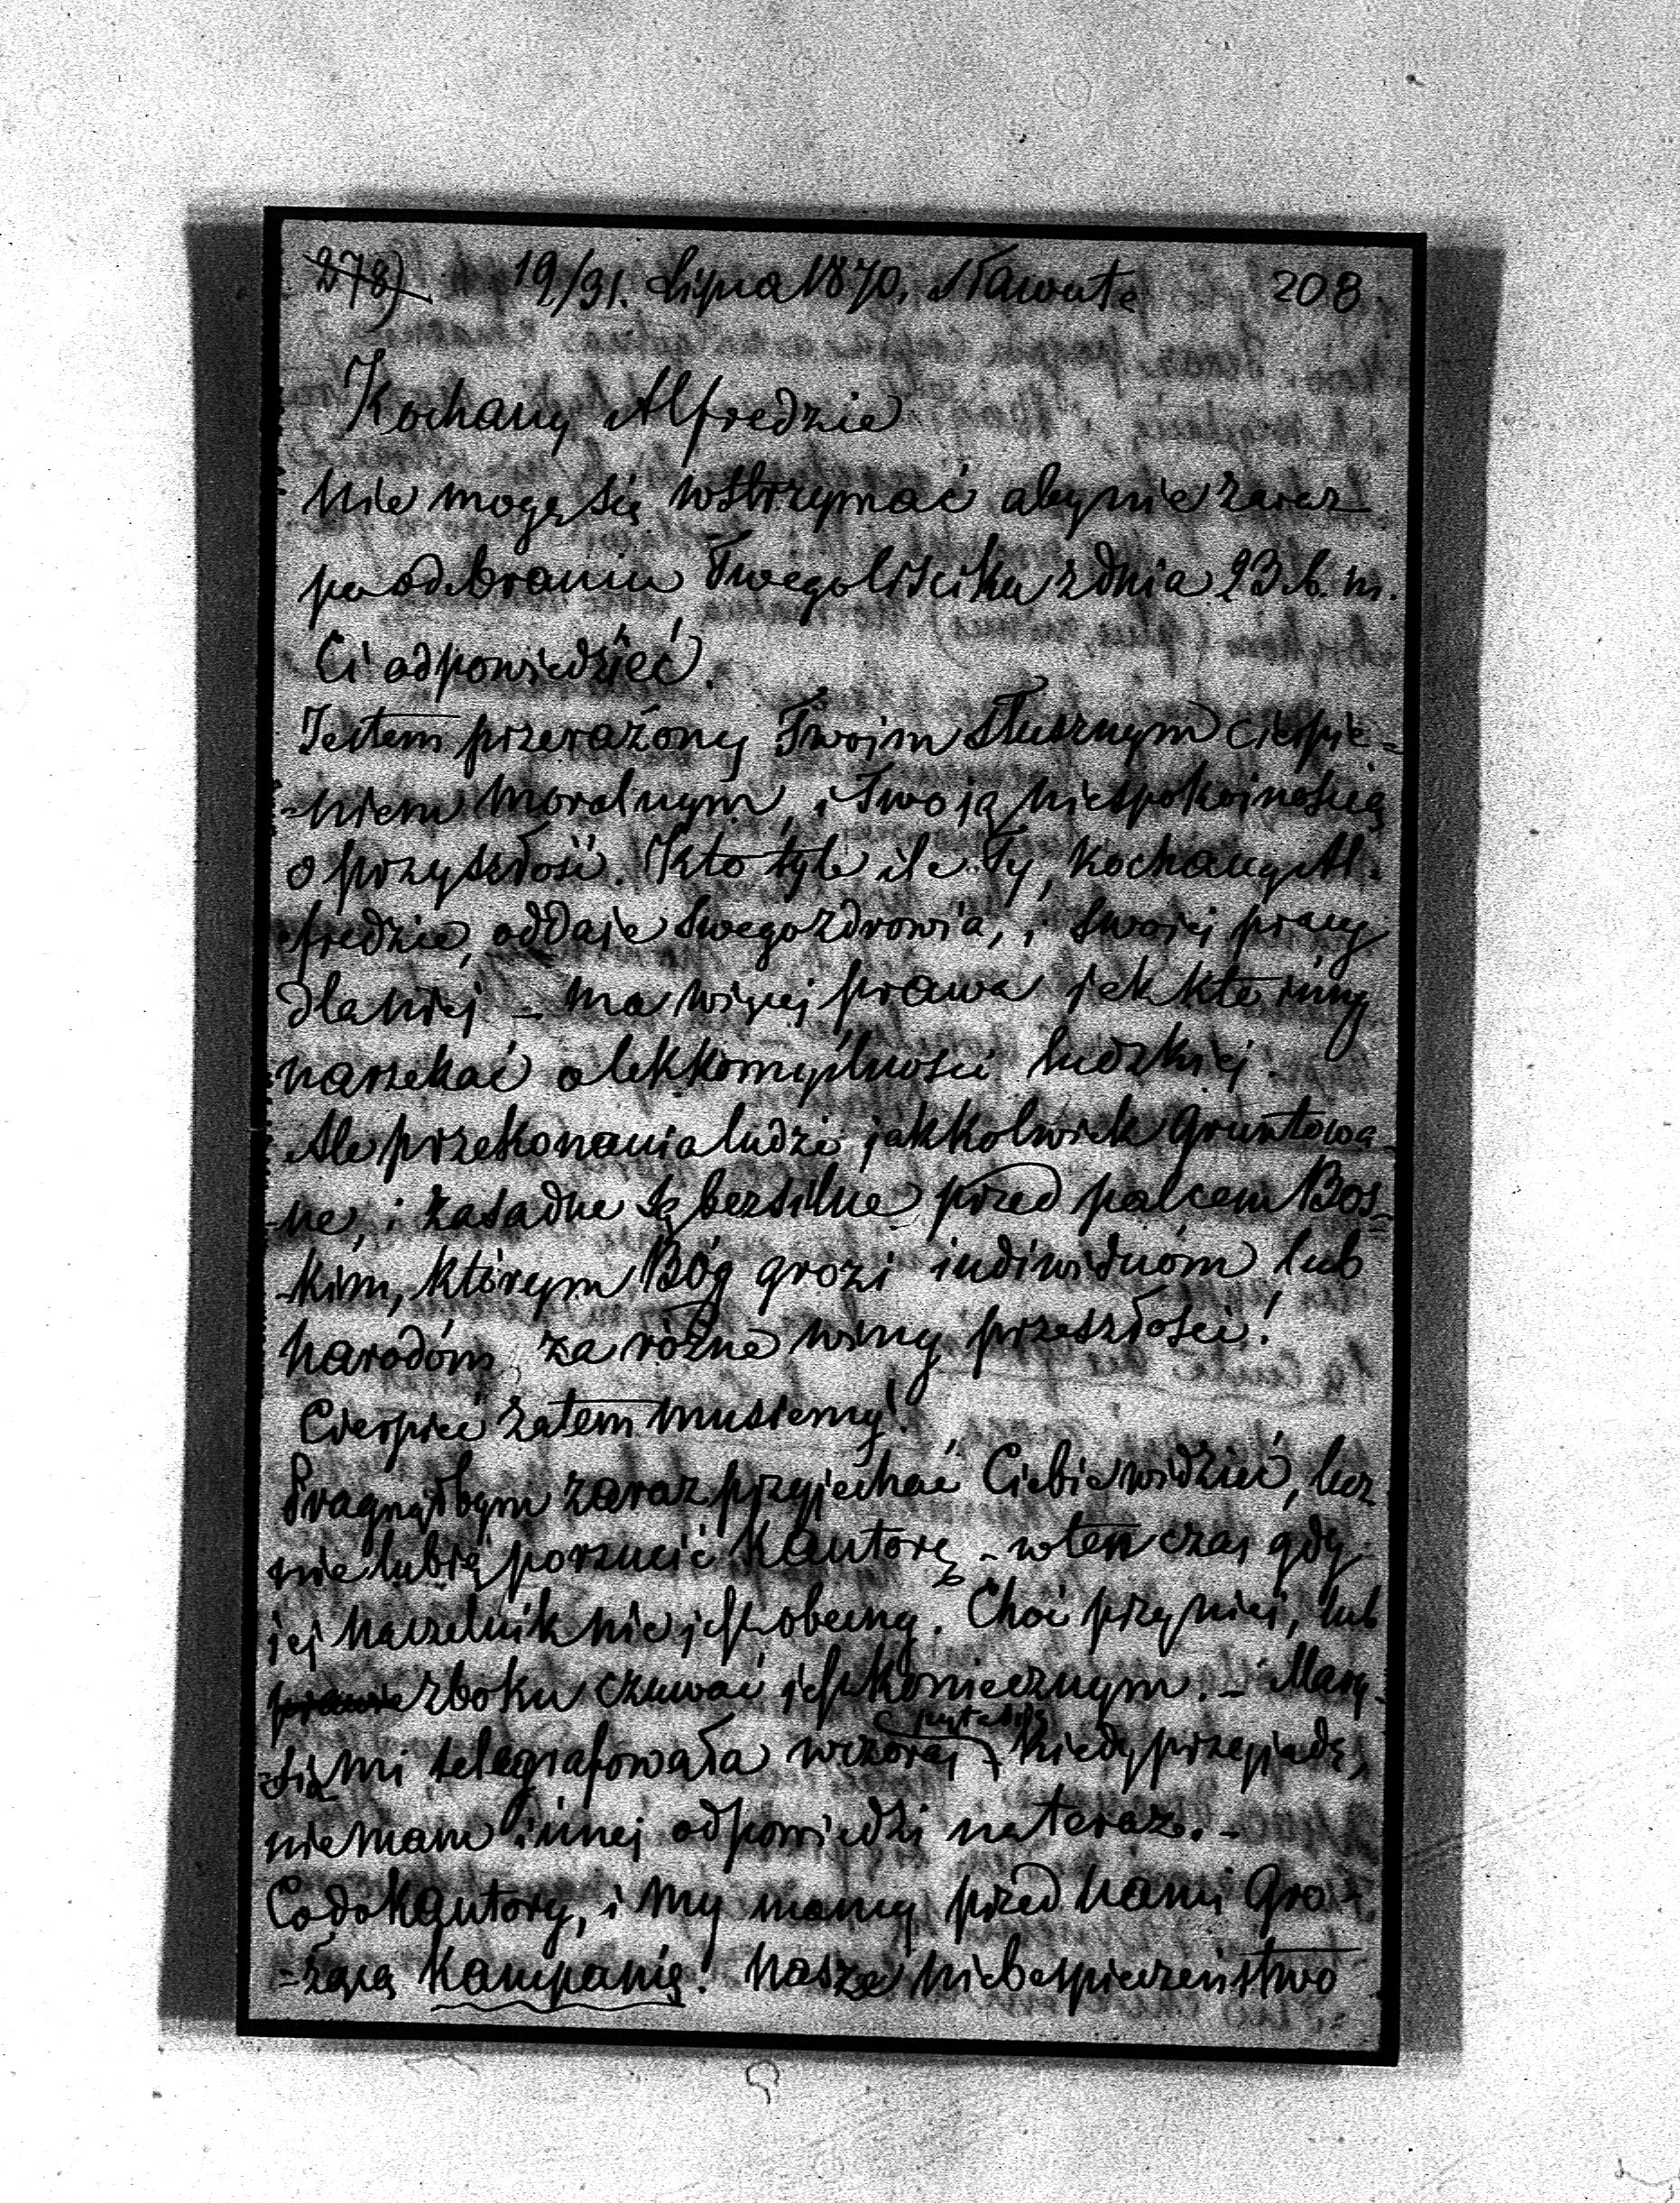 278) 19/31. Lipca 1870. Sławuta 208
Kochany Alfredzie
Nie mogę się wstrzymać aby nie zaraz
po odebraniu Twego liściku z dnia 23 b. m.
Ci odpowiedzieć.
Jestem przerażony Twojm słusznym cierpie=
=niem moralnym, i Twoją niespokojnością
o przyszłość. Kto tyle ile Ty, kochany Al=
fredzie, oddaje swego zdrowia, i swojej pracy
dla niej - ma więcej prawa jak kto inny
narzekać o lekkomyślności ludzkiej.
Ale przekonania ludzi jakkolwiek gruntowa=
=ne, i zasadne są bezsilne przed palcem Bos=
=kim, którym Bóg grozi indiwiduóm lub
narodóm za różne winy przeszłości!
Cierpieć zatem musiemy!
Pragnąłbym zaraz przyjechać Ciebie widzieć, lecz
nie lubię porzucić Kantorę - w ten czas gdy
jej naczelnik nie jest obecny. Choć przy niej, lub
prawie z boku czuwać jest koniecznym. - Mary=
=sia mi telegrafowała wczoraj pytając kiedy przyjadę,
nie mam innej odpowiedzi na teraz. -
Co do Kantory, i my mamy przed nami gro=
=żącą Kampanię! Nasze niebespieczeństwo